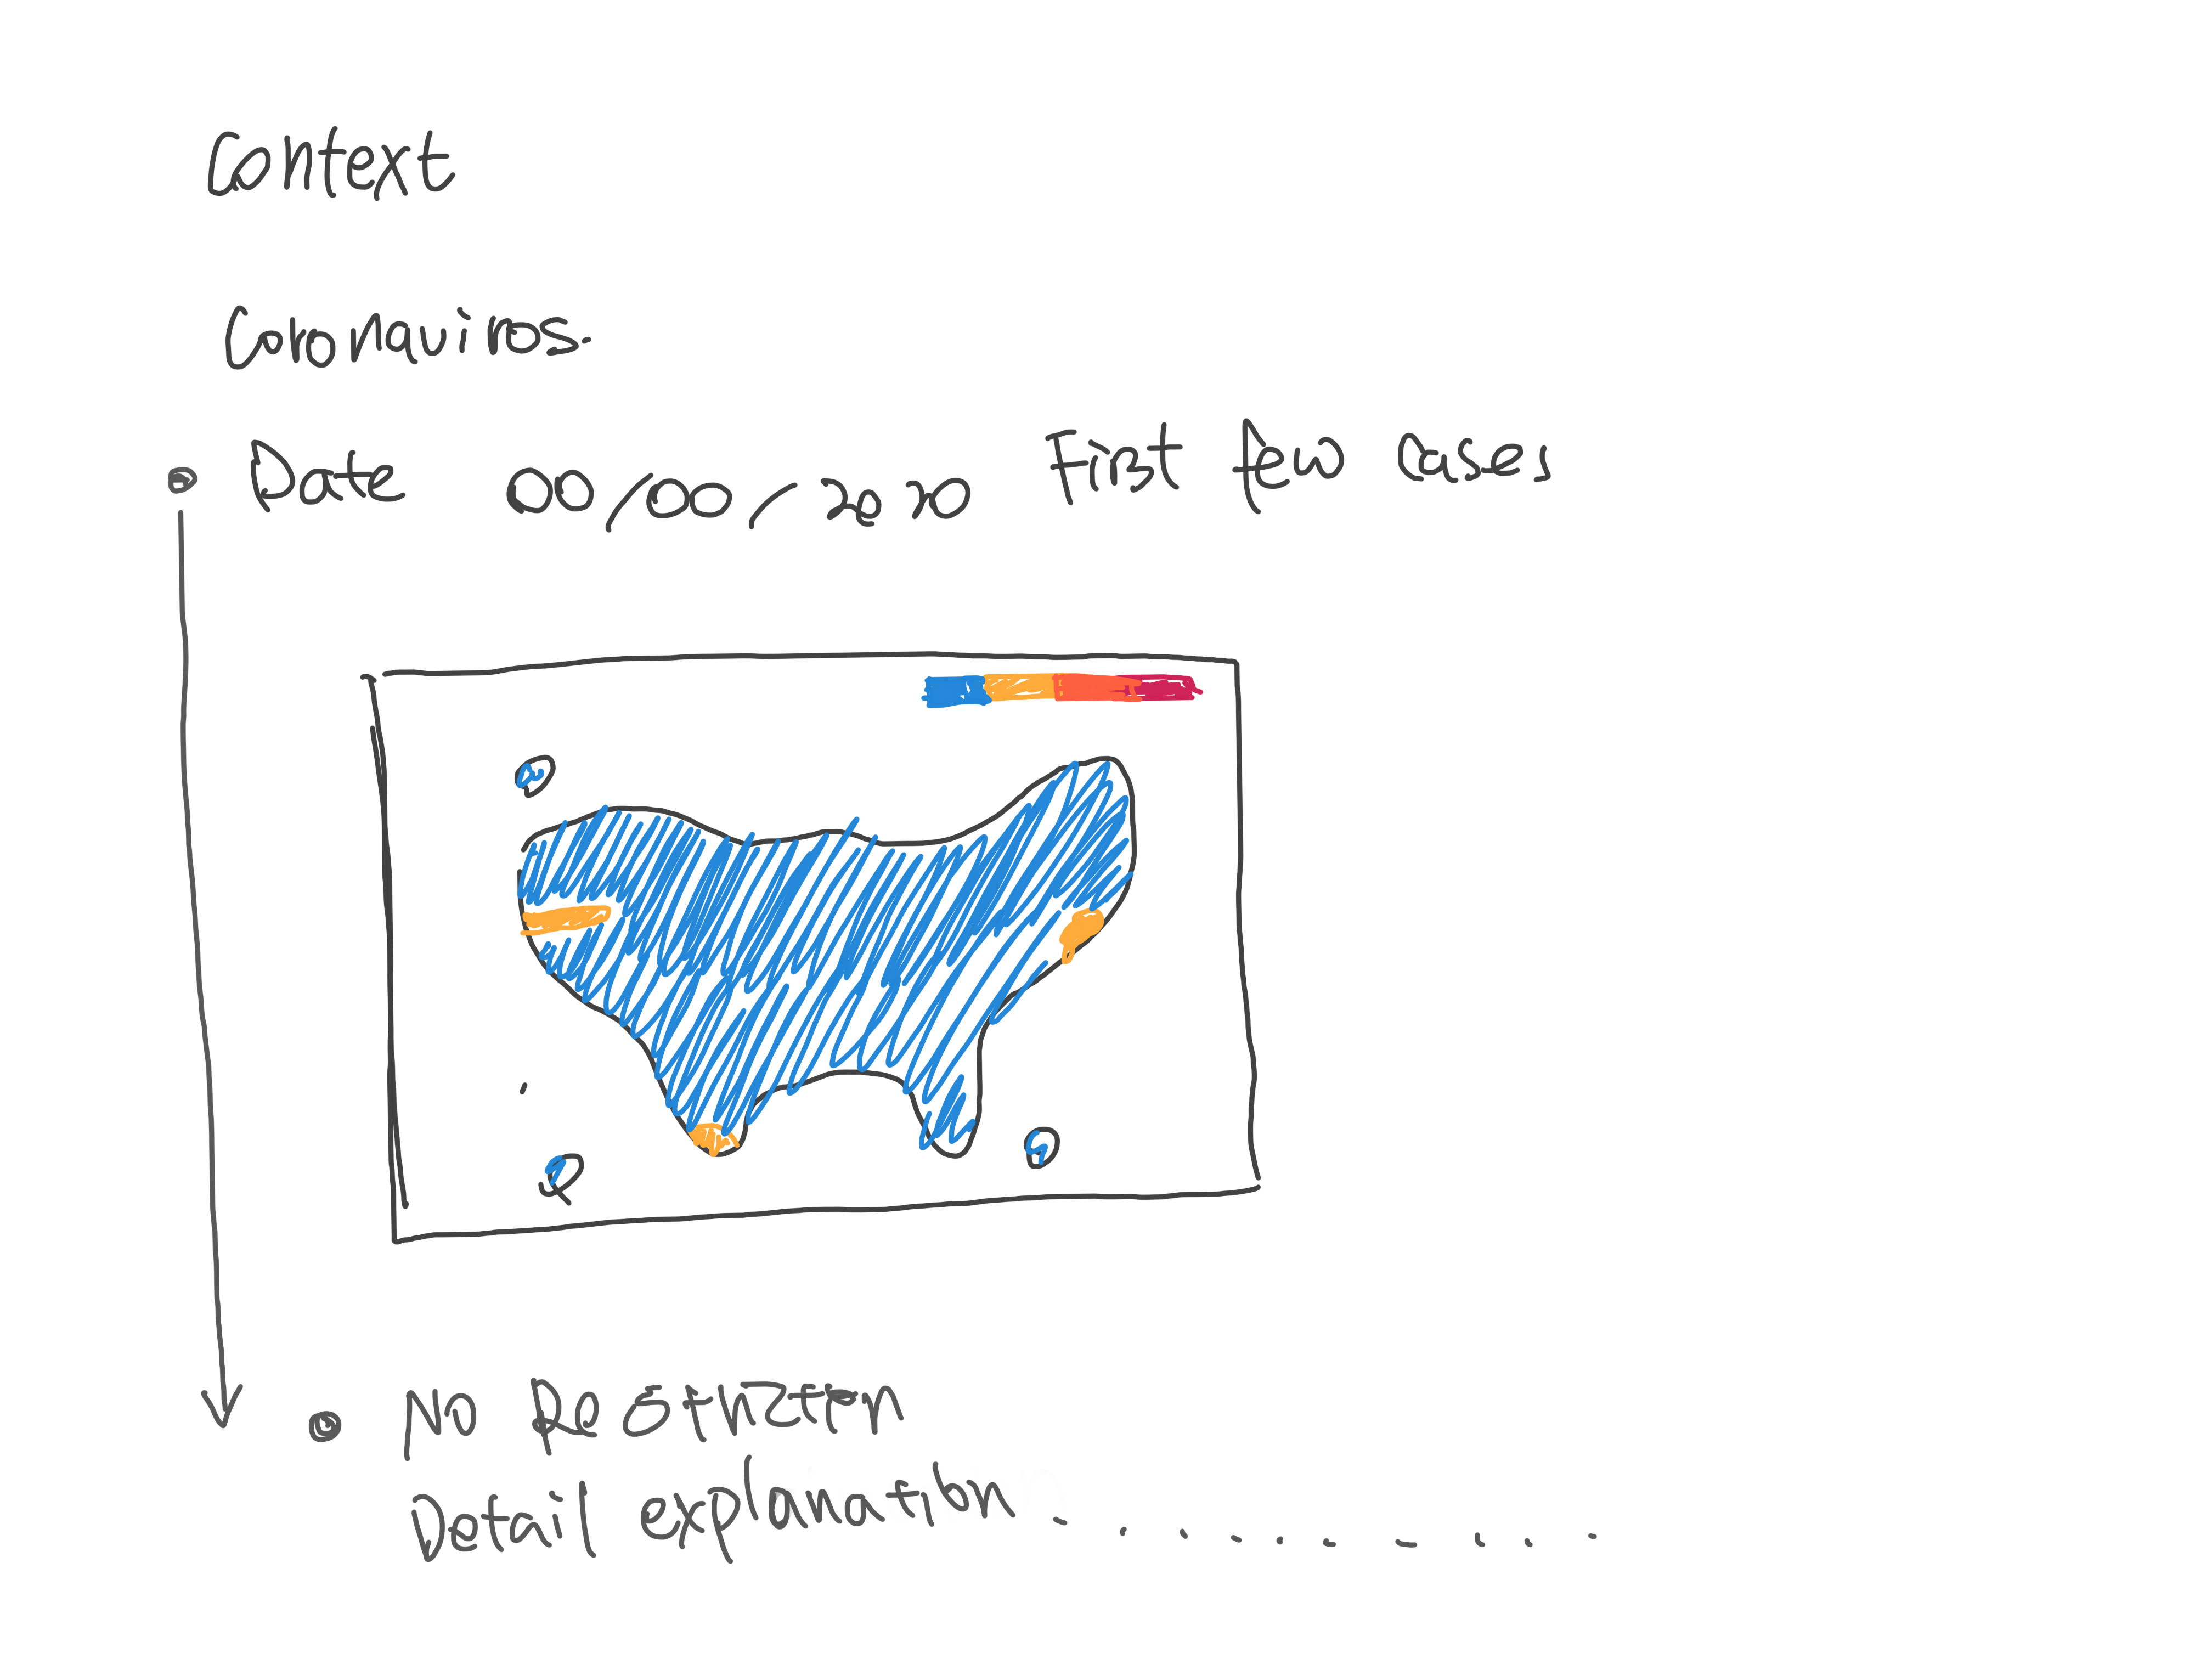 Context
Coronavirus.
Date 00/00/2020 First few cases
No Restriction
Detail explanation. . . . . . . . . . .